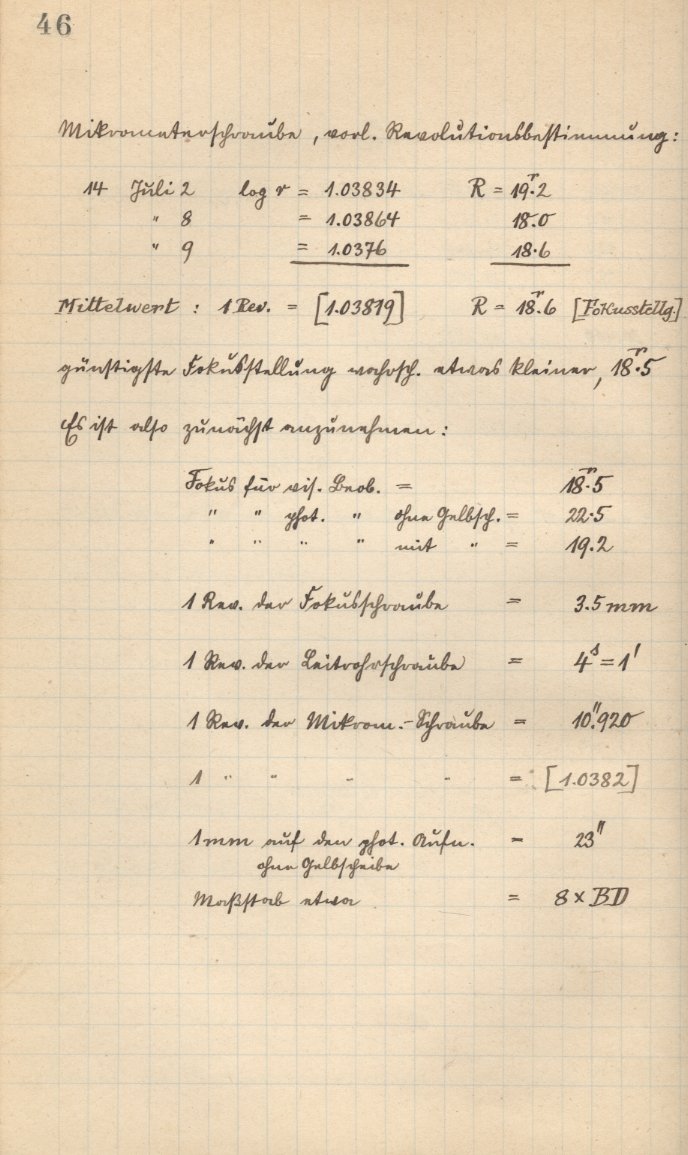 46
Mikrometerschraube, vorl. Revolutionsbestimmung:
14 Juli 2 log r = 1.03834 R = 19ʳ.2
" 8 = 1.03864 18.0
" 9 = 1.0376 18.6
Mittelwert : 1 Rev. = [1.03819] R = 18ʳ.6 [Fokusstellg.]
günstigste Fokusstellung wahrsch. etwas kleiner, 18ʳ.5
Es ist also zunächst anzunehmen:
Fokus für vis. Beob. = 18ʳ.5
" " phot. " ohne Gelbsch. = 22.5
" " " " mit " = 19.2
1 Rev. der Fokusschraube = 3.5 mm
1 Rev. der Leitrohrschraube = 4ˢ = 1'
1 Rev. der Mikrom.-Schraube = 10".920
1 " " " " = [1.0382]
1 mm auf den phot. Aufn. = 23"
ohne Gelbscheibe
Maßstab etwa = 8 × BD